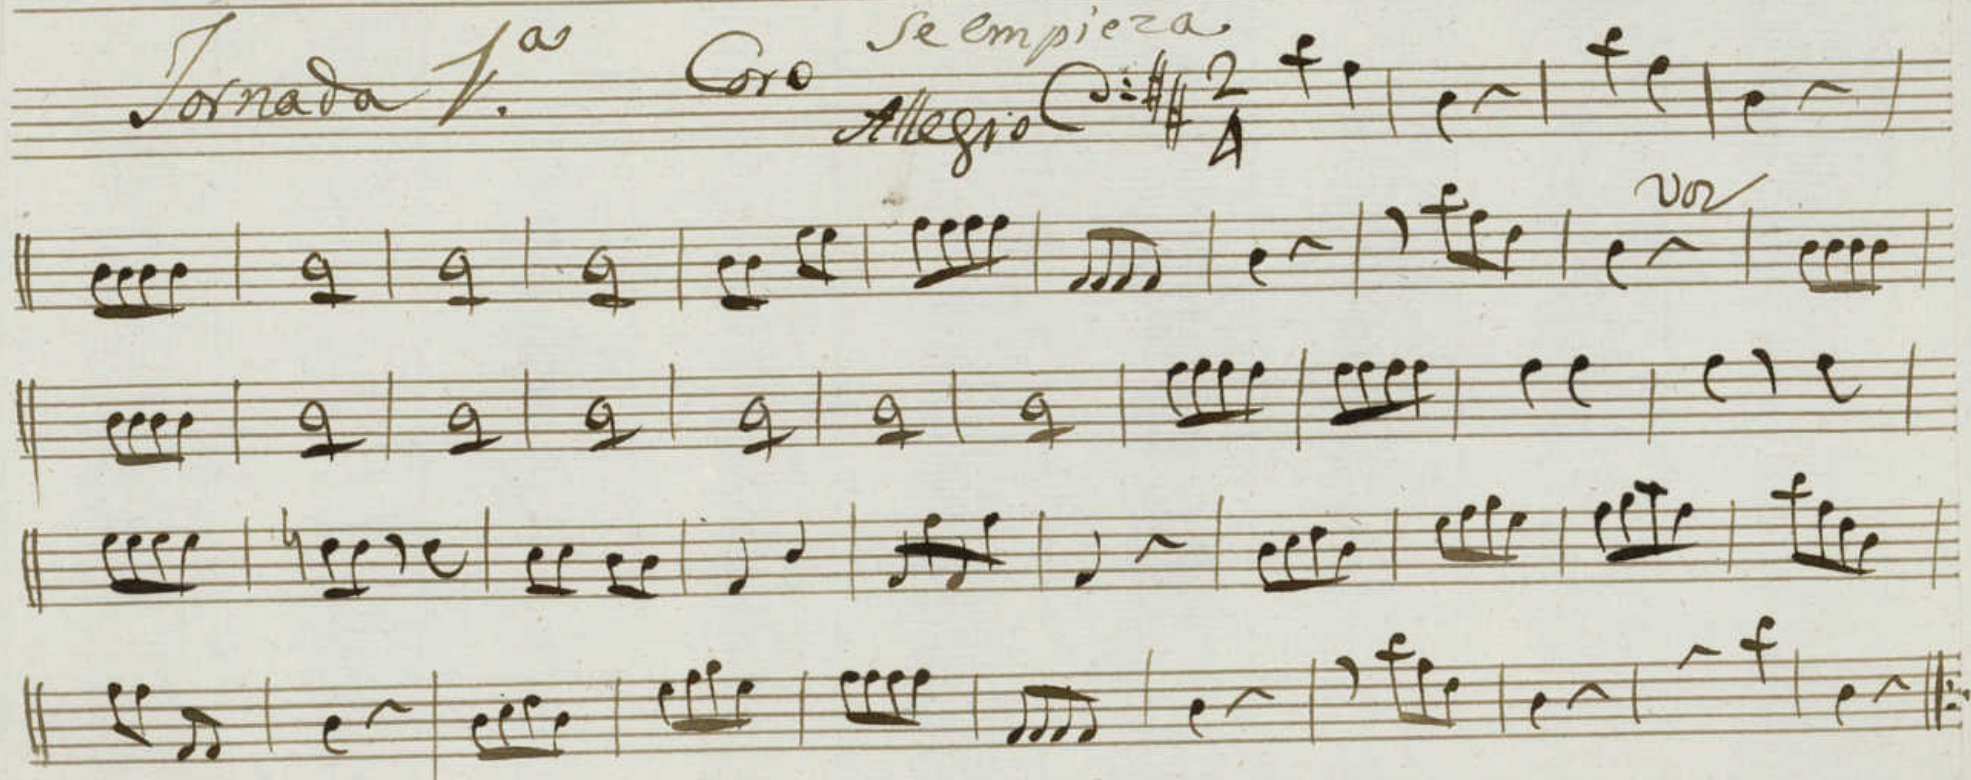 Jornada 1.ª Coro Se empieza
Allegro 2/4
voz